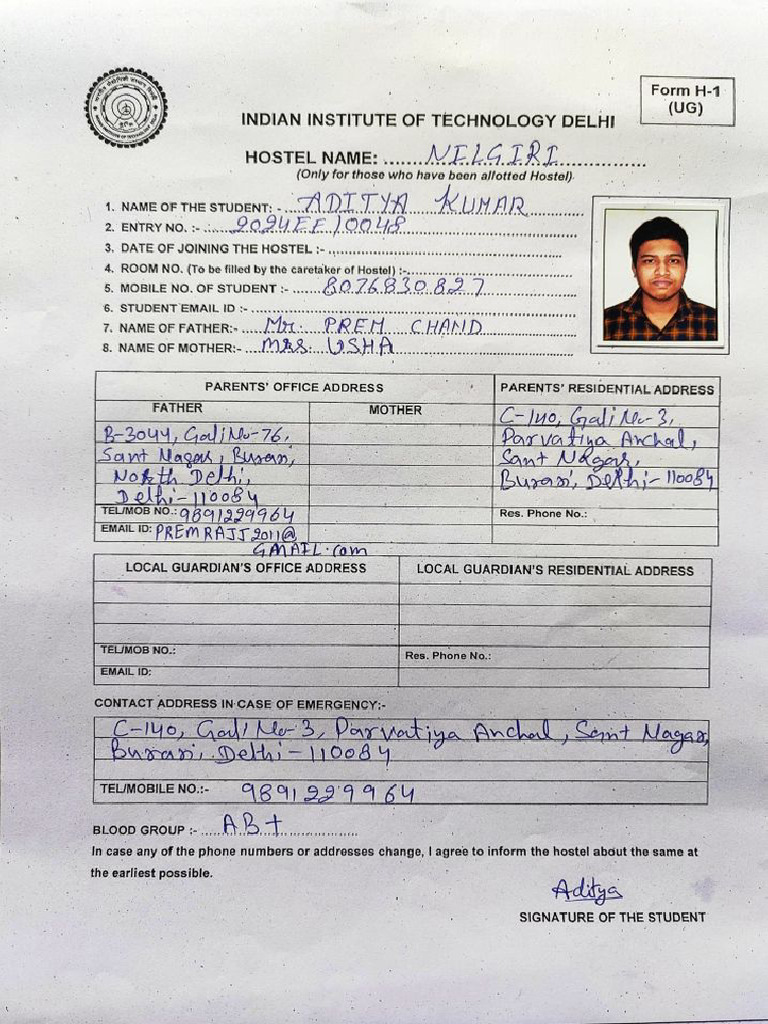 Form H-1
(UG)
INDIAN INSTITUTE OF TECHNOLOGY DELHI
HOSTEL NAME: NILGIRI
(Only for those who have been allotted Hostel)
1. NAME OF THE STUDENT: - ADITYA KUMAR
2. ENTRY NO. :- 2024EE10048
3. DATE OF JOINING THE HOSTEL :-
4. ROOM NO. (To be filled by the caretaker of Hostel) :-
5. MOBILE NO. OF STUDENT :- 8076830827
6. STUDENT EMAIL ID :-
7. NAME OF FATHER:- Mr. PREM CHAND
8. NAME OF MOTHER:- MRS. USHA
PARENTS' OFFICE ADDRESS
FATHER
MOTHER
B-3044, Gali No-76,
Sant Nagar, Burari,
North Delhi,
Delhi-110084
TEL/MOB NO.: 9891229964
EMAIL ID: PREMRAJJ2011@
GMAIL.com
PARENTS' RESIDENTIAL ADDRESS
C-140, Gali No-3,
Parvatiya Anchal,
Sant Nagar,
Burari, Delhi-110084
Res. Phone No.:
LOCAL GUARDIAN'S OFFICE ADDRESS
TEL/MOB NO.:
EMAIL ID:
LOCAL GUARDIAN'S RESIDENTIAL ADDRESS
Res. Phone No.:
CONTACT ADDRESS IN CASE OF EMERGENCY:-
C-140, Gali No-3, Parvatiya Anchal, Sant Nagar,
Burari, Delhi-110084
TEL/MOBILE NO.:- 9891229964
BLOOD GROUP :- AB+
In case any of the phone numbers or addresses change, I agree to inform the hostel about the same at
the earliest possible.
Aditya
SIGNATURE OF THE STUDENT